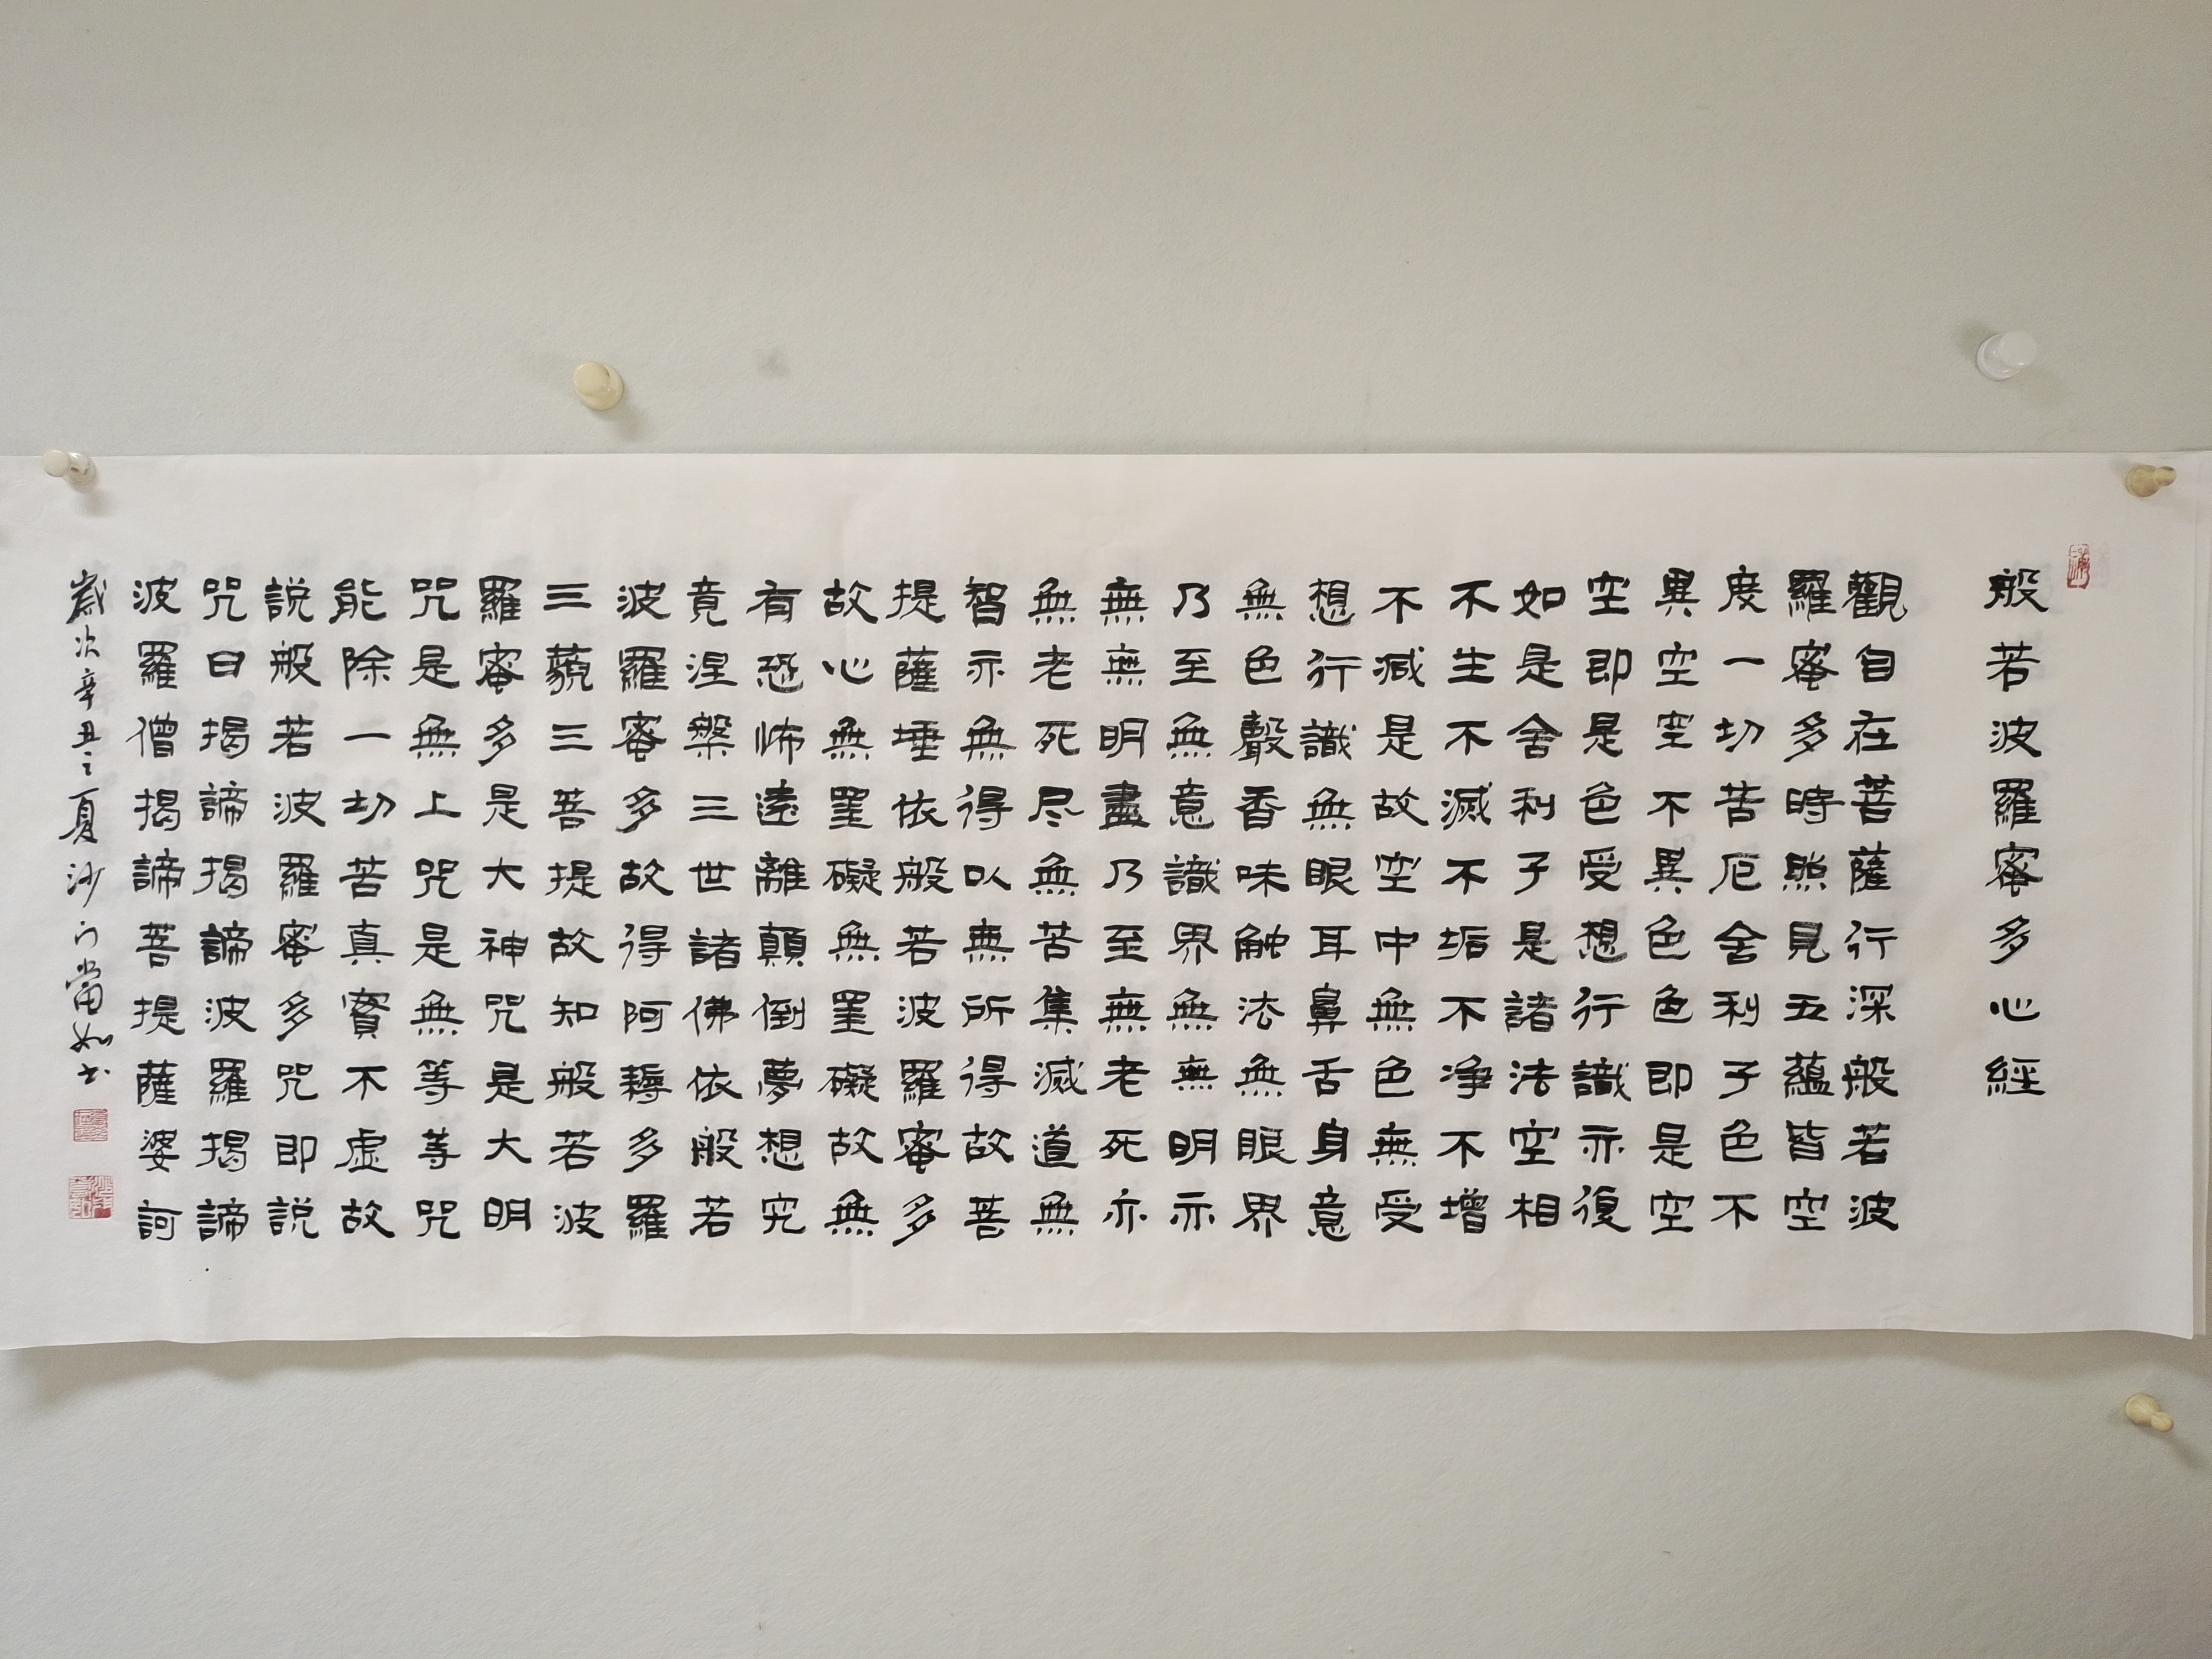 般若波羅蜜多心經
觀自在菩薩行深般若波
羅蜜多時照見五蘊皆空
度一切苦厄舍利子色不
異空空不異色色即是空
空即是色受想行識亦復
如是舍利子是諸法空相
不生不滅不垢不净不增
不减是故空中無色無受
想行識無眼耳鼻舌身意
無色聲香味触法無眼界
乃至無意識界無無明亦
無無明盡乃至無老死亦
無老死尽無苦集滅道無
智亦無得以無所得故菩
提薩埵依般若波羅蜜多
故心無罣礙無罣礙故無
有恐怖遠離顛倒夢想究
竟涅槃三世諸佛依般若
波羅蜜多故得阿耨多羅
三藐三菩提故知般若波
羅蜜多是大神咒是大明
咒是無上咒是無等等咒
能除一切苦真實不虛故
説般若波羅蜜多咒即説
咒曰揭諦揭諦波羅揭諦
波羅僧揭諦菩提薩婆訶
歲次辛丑之夏沙门當如书